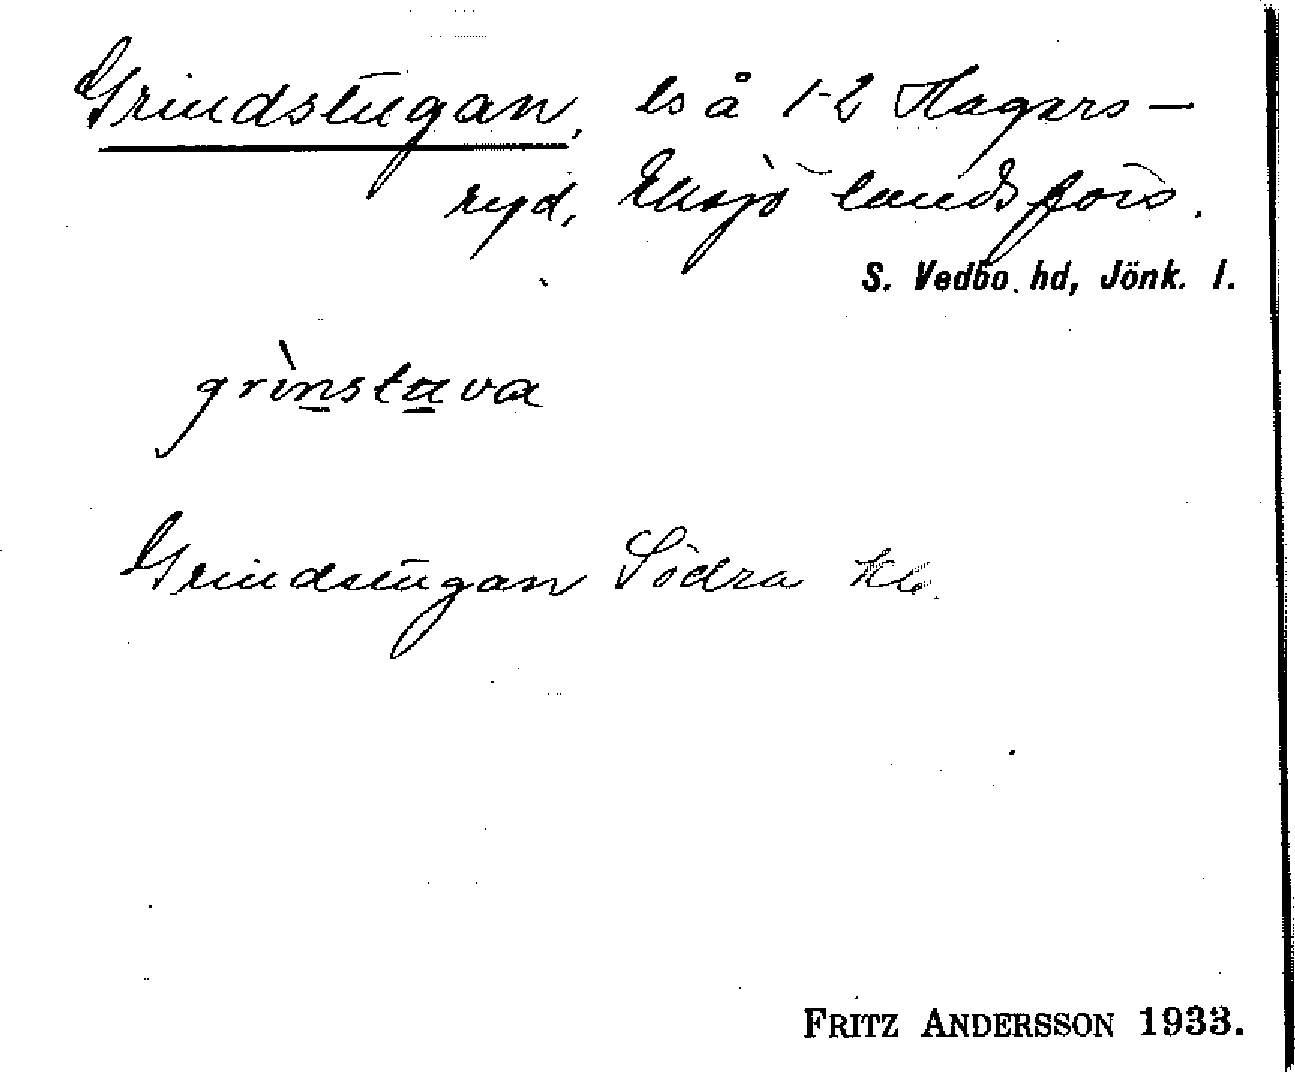 Grindstugan, ls å 1-2 Hagars-
ryd, Eksjö landsförs.
S. Vedbo hd, Jönk. l.
grìnstava
Grindstugan Södra Kb.
FRITZ ANDERSSON 1933.